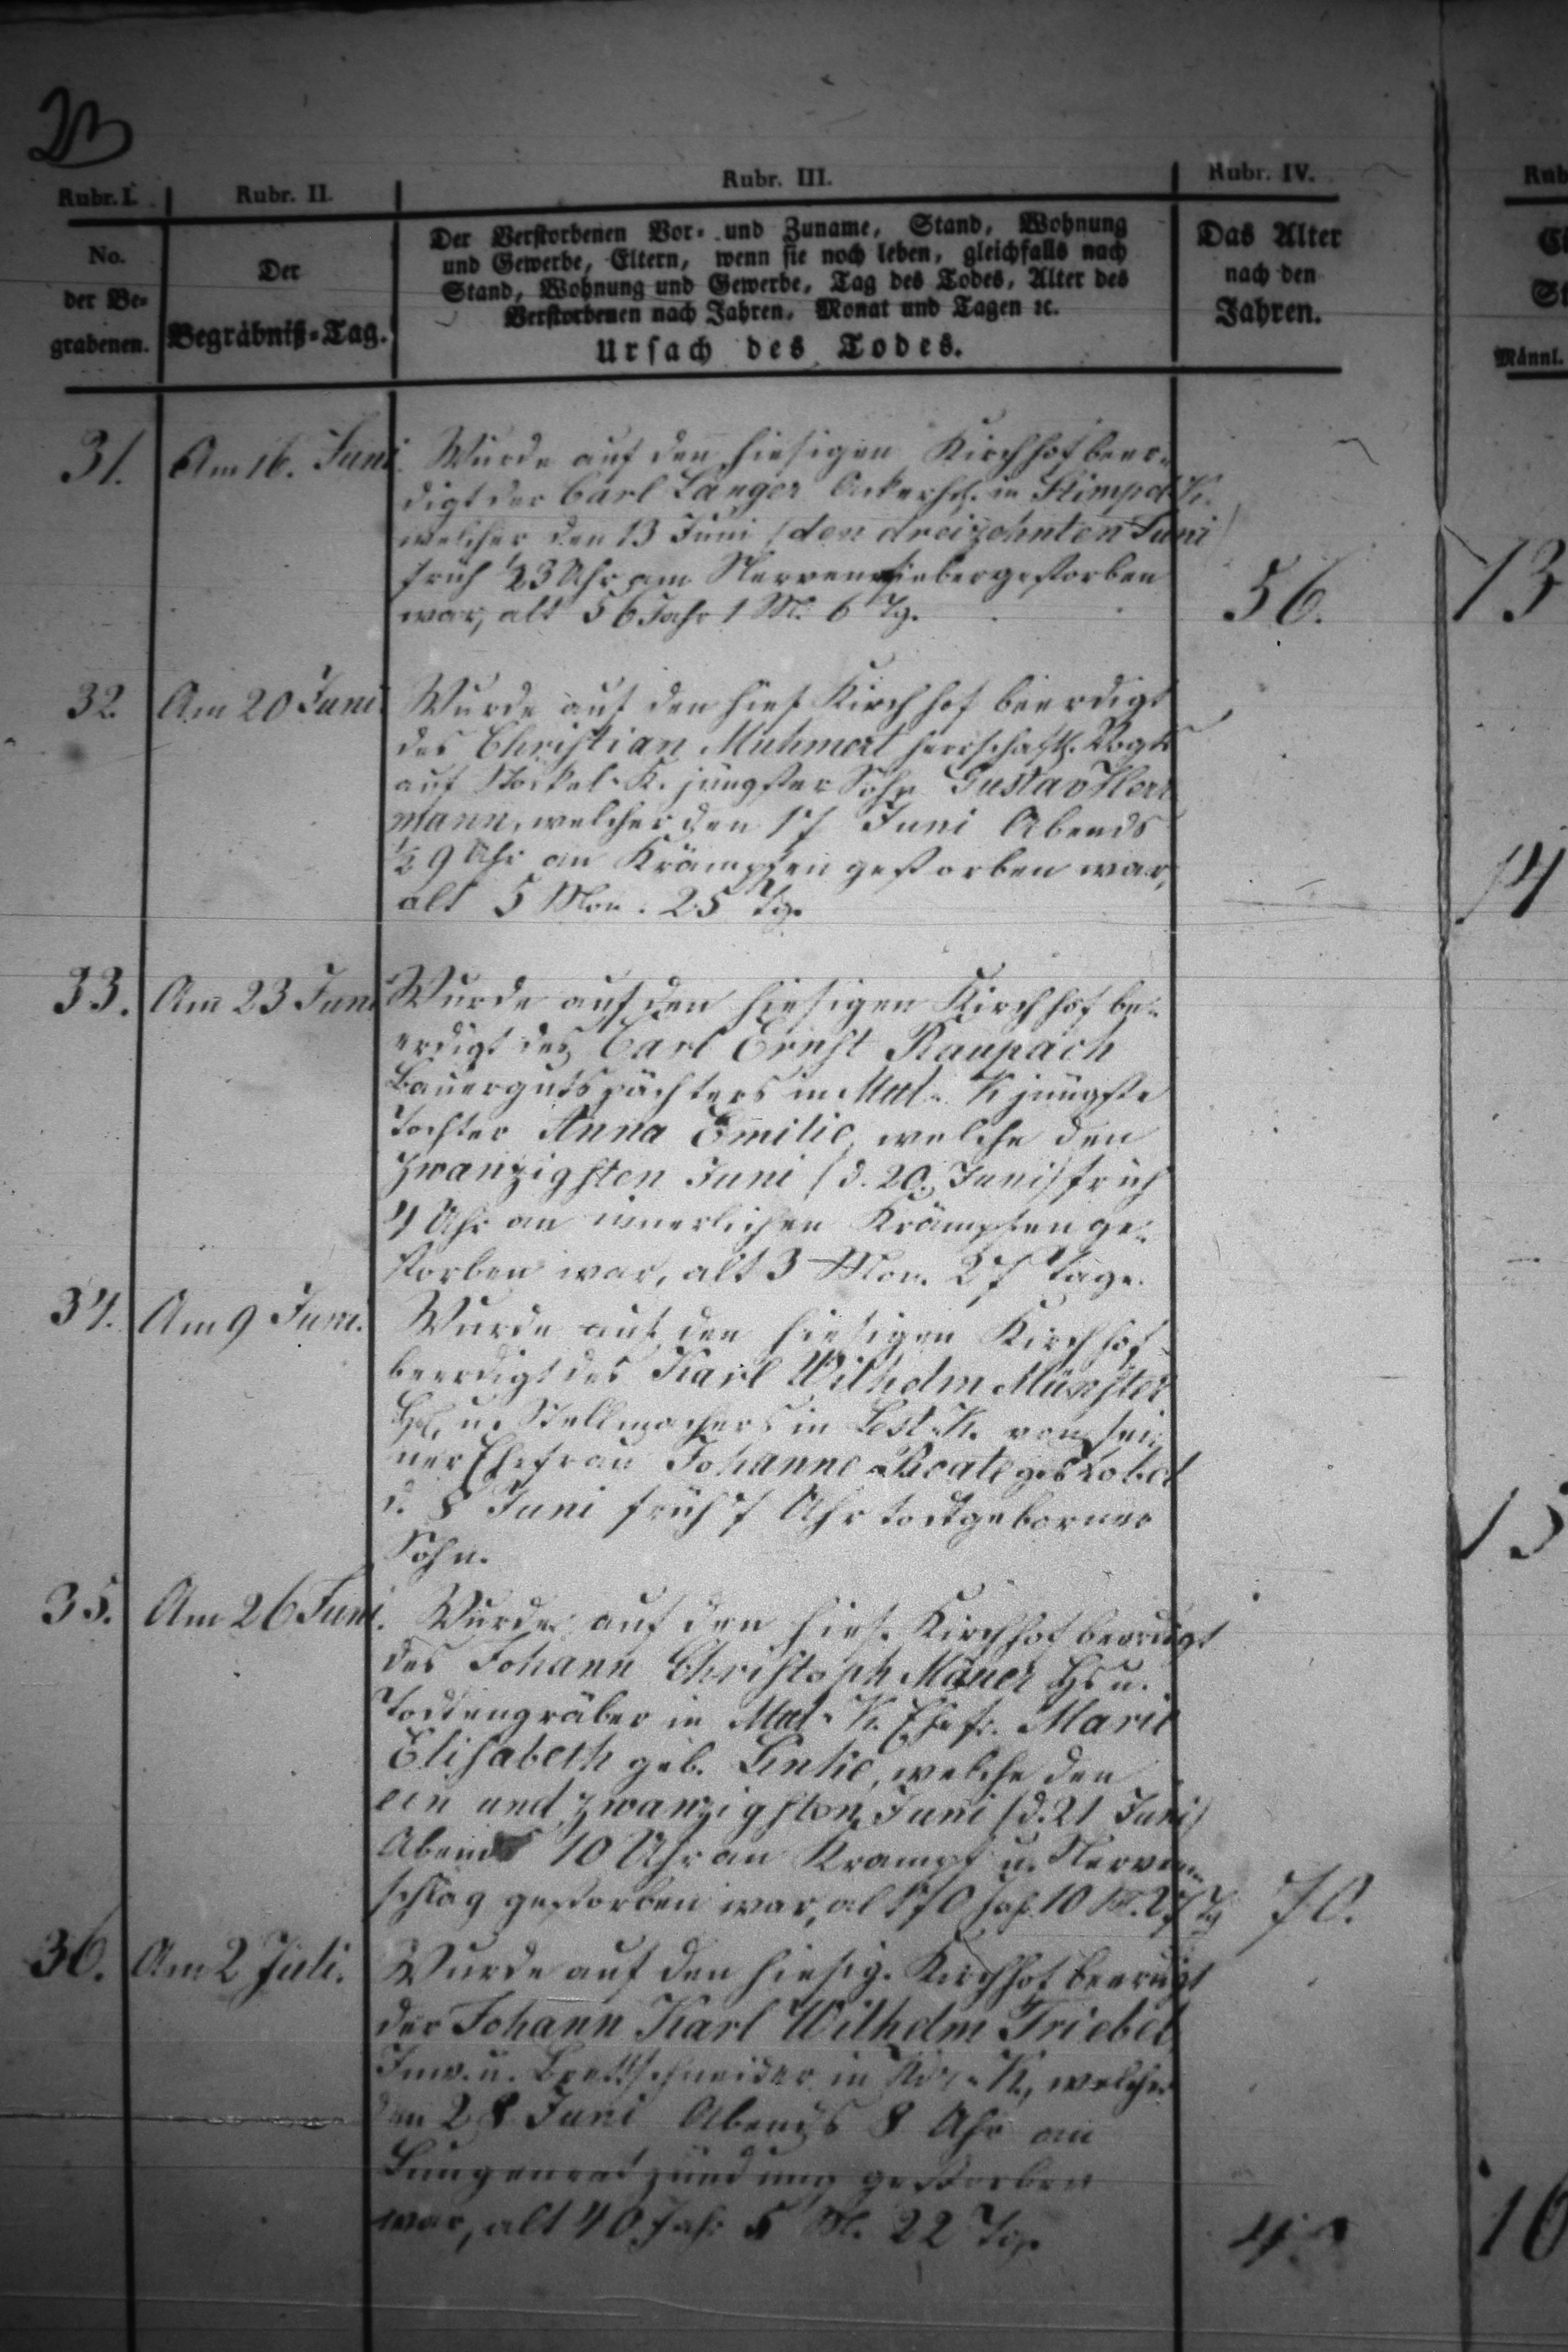 Rubr. I. Rubr. II. Rubr. III. Rubr. IV.
No.
der Be-
grabenen.
Der
Begräbniß-Tag.
Der Verstorbenen Vor- und Zuname, Stand, Wohnung
und Gewerbe, Eltern, wenn sie noch leben, gleichfalls nach
Stand, Wohnung und Gewerbe, Tag des Todes, Alter des
Verstorbenen nach Jahren, Monat und Tagen ꝛc.
Ursach des Todes.
Das Alter
nach den
Jahren.
Männl.
31. Am 16. Juni. Wurde auf den hiesigen Kirchhof beer-
digt der Carl Langer Ackerh. in K.
welcher den 13 Juni (den dreizehnten Juni)
früh ½3 Uhr am Nervenfieber gestorben
war, alt 56 Jahr 1 M. 6 Tg. 56. 13
32. Am 20 Juni Wurde auf den hies. Kirchhof beerdigt
des Christian Muhmert herrschaftl. Vogts
auf Stöckel-K. jüngster Sohn Gustav Herr
mann, welcher den 17 Juni Abends
½ 9 Uhr an Krämpfen gestorben war,
alt 5 Mon. 25 Tg. 14
33. Am 23 Juni Wurde auf den hiesigen Kirchhof be-
erdigt des Carl Ernst Raupach
Bauergutspächters in Mttl-K jüngste
Tochter Anna Emilie, welche den
zwanzigsten Juni (d. 20. Juni) früh
4 Uhr an innerlichen Krämpfen ge-
storben war, alt 3 Mon. 27 Tage.
34. Am 9 Juni. Wurde auf den hiesigen Kirchhof
beerdigt des Karl Wilhelm Münster
u. Stellmachers in K. von sei-
ner Ehefrau Johanne Beate geb
d. 8 Juni früh 7 Uhr todtgeborner
Sohn. 15
35. Am 26 Juni. Wurde auf den hies. Kirchhof beerdigt
des Johann Christoph Hs u.
Todtengräber in Mttl-K. Ehefr. Marie
Elisabeth geb. Linke, welche den
ein und zwanzigsten Juni (d. 21 Juni)
Abends 10 Uhr an Krampf u. Nerven-
schlag gestorben war, alt 70 Jah. 10 M. 27 Tg 70.
36. Am 2 Juli. Wurde auf den hiesig. Kirchhof beerdigt
der Johann Karl Wilhelm Triebel
Inw. u. Brettschneider in K., welcher
den 28 Juni Abends 8 Uhr an
Lungenentzündung gestorben
war, alt 40 Jah. 5 M. 22 Tg. 40 16